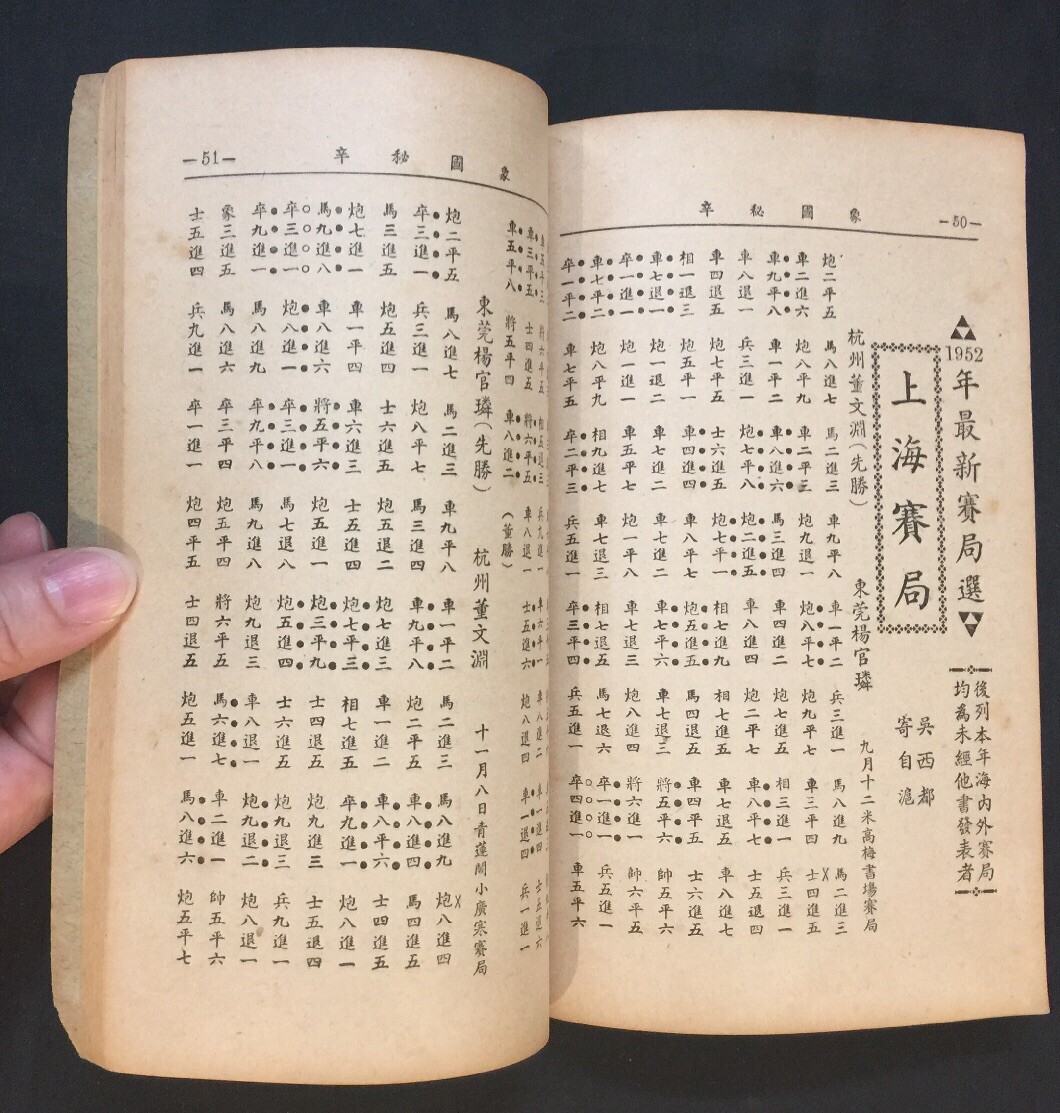 象圖秘卒
—50—
1952年最新賽局選
後列本年海內外賽局
均為未經他書發表者
上海賽局
吳西都
寄自滬
杭州董文淵(先勝) 東莞楊官璘 九月十二米高梅書場賽局
炮二平五 馬八進七 馬二進三 車九平八 車一平二 兵三進一 馬八進九 馬二進三
車二進六 炮八平九 車二平三 炮九退一 炮八平七 炮九平七 車三平四 士四進五
車九平八 車一平二 車八進六 馬三進四 車四進二 車七進五 相三進一 兵三進一
車八退一 兵三進一 炮七平八 炮二進五 車八進四 炮二平七 車八平七 士五退四
車四退五 炮七平五 士六進五 炮七平一 相七進九 相七進五 車七退五 車八進七
相一退三 炮五平一 車四進四 車八平七 炮五進五 馬四退五 車四平五 士六進五
車七退一 炮一退二 車七進二 車七平六 車七退三 將五平六 帥五平六
卒一進一 炮一進一 車五平七 炮一平八 車七進三 炮八進四 將六進一 帥六平五
車七平二 炮八平九 相九進七 車七退三 相七退五 馬七退六 卒一進一 兵五進一
卒一平二 車七平五 卒二平三 兵五進一 卒三平四 兵五進一 卒四進一 車五平六
象圖秘卒
—51—
車三平五 士四進五 將六平五 車八退一 士五進六 炮八退四 車一退四 兵一進一
車五平八 將五平四 車八進二 (董勝)
東莞楊官璘(先勝) 杭州董文淵 十一月八日青蓮閣小廣寒賽局
炮二平五 馬八進七 馬二進三 車九平八 車一平二 馬二進三 馬八進九 炮八進四
卒三進一 兵三進一 炮八平七 馬三進四 車九平八 炮二平五 車八進四 馬四進五
馬三進五 炮五進四 士六進五 炮五退二 炮七進三 車一進二 車八平六 士四進五
炮七進一 車一平四 車六進三 士五進四 炮七平三 相七進五 卒九進一 炮八進一
馬九進八 車八進六 將五平六 炮五進一 炮三平九 士四退五 炮九進三 士五退四
卒三進一 炮八進一 卒三進一 馬七退八 炮五進四 士六進五 炮九退三 兵九進一
卒九進一 馬八進九 卒九平八 馬九進八 炮九退三 車八退一 炮九退二 炮八退一
象三進五 馬八進六 卒三平四 炮五平四 將六平五 馬六進七 車二進一 帥五平六
士五進四 兵九進一 卒一進一 炮四平五 士四退五 炮五進一 馬八進六 炮五平七